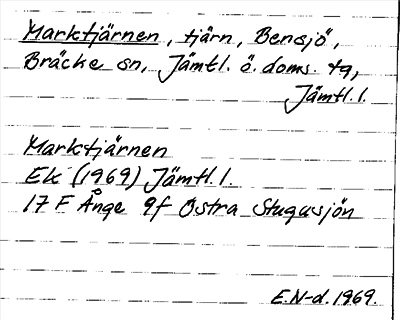 Marktjärnen, tjärn, Bensjö,
Bräcke sn, Jämtl. ö. doms. tg,
Jämtl. l.
Marktjärnen
Ek (1969) Jämtl. l.
17 F Ånge 9f Östra Stugusjön
E.N-d. 1969.